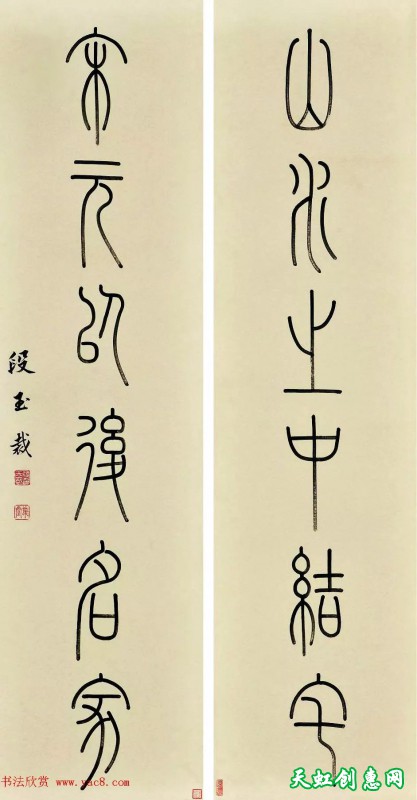 山水之中結宇
宋元以後名家
段玉裁
书法欣赏 www.yac8.com
天虹创惠网